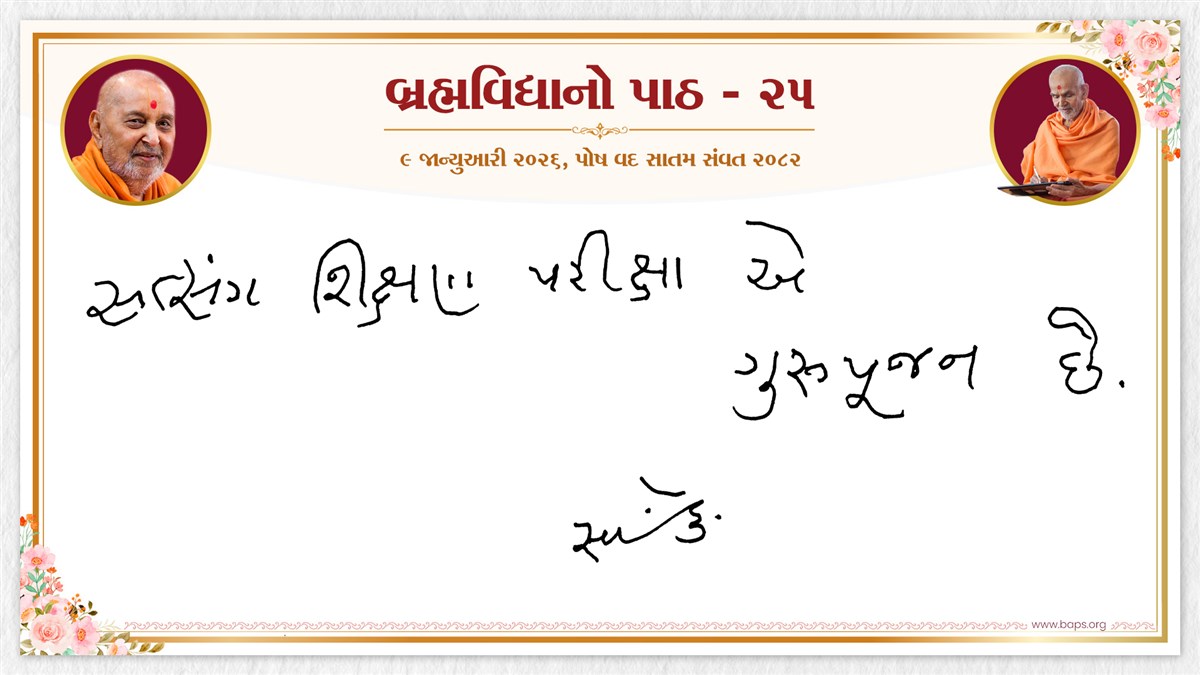 બ્રહ્મવિદ્યાનો પાઠ - ૨૫
૯ જાન્યુઆરી ૨૦૨૬, પોષ વદ સાતમ સંવત ૨૦૮૨
સત્સંગ શિક્ષણ પરીક્ષા એ
ગુરુપૂજન છે.
www.baps.org